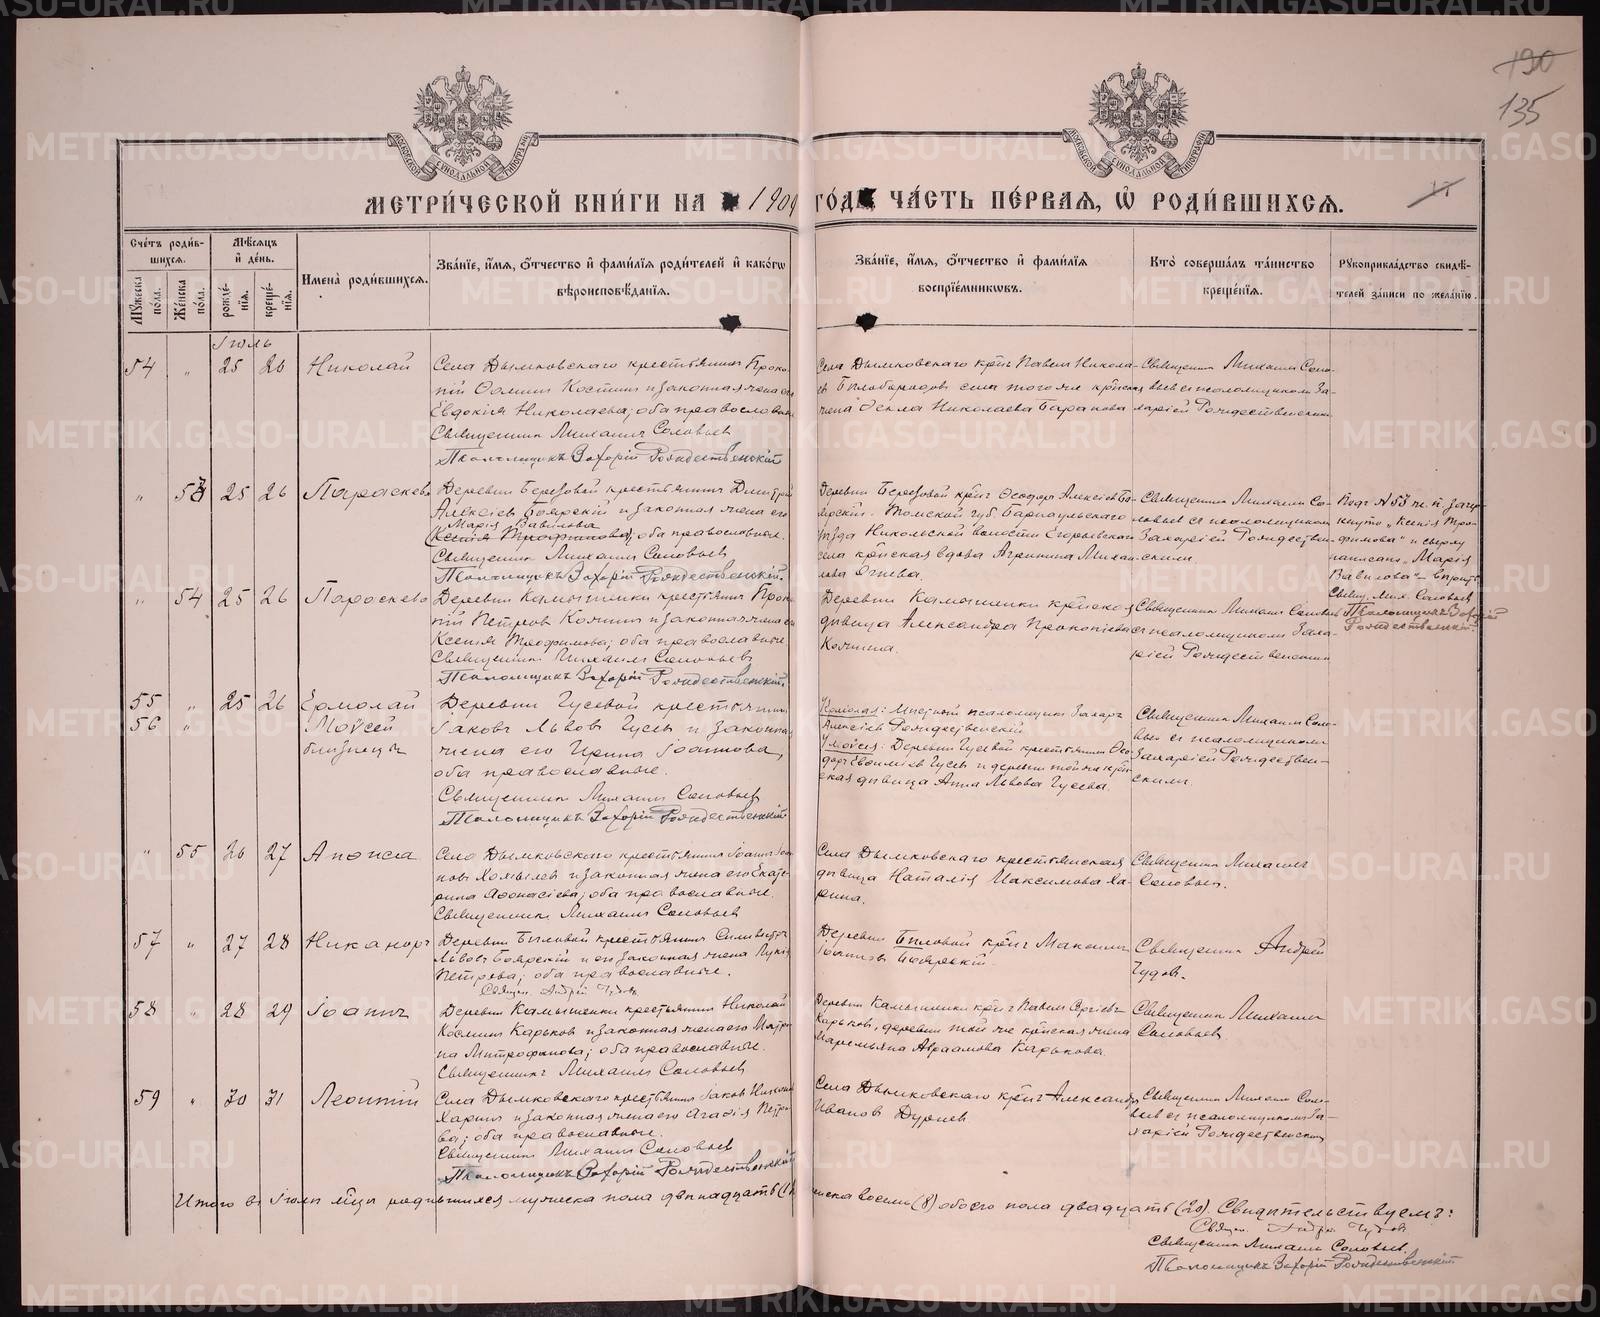 190
135
МОСКОВСКОЙ СѴНОДАЛЬНОЙ ТИПОГРАФІИ
МОСКОВСКОЙ СѴНОДАЛЬНОЙ ТИПОГРАФІИ
МЕТРИ́ЧЕСКОЙ КНИ́ГИ НА 1909 ГО́Д ЧА́СТЬ ПЕ́РВАЯ, Ѽ РОДИ́ВШИХСЯ.
Сче́тъ роди́в-
шихся.
Мѣ́сяцъ
и҆ де́нь.
Мꙋ́жеска по́ла.
Же́нска по́ла.
рожде́-
нїя.
креще́-
нїя.
Имена̀ роди́вшихся.
Зва́нїе, и҆́мя, ѻ҆́тчество и҆ фами́лїя роди́телей и҆ како́гѡ
вѣроисповѣ́данїя.
Зва́нїе, и҆́мя, ѻ҆́тчество и҆ фами́лїя
воспрїе́мникѡвъ.
Кто̀ соверша́лъ та́инство
креще́нїя.
Рꙋкоприкла́дство свидѣ́-
телей за́писи по жела́нїю.
Іюль
54 " 25 26 Николай
Села Дымковскаго крестьянинъ Проко-
пій Ѳоминъ Костинъ и законная жена его
Евдокія Николаева; оба православные
Священникъ Михаилъ Соловьевъ
Псаломщикъ Захарій Рождественскій
Села Дымковскаго кр-нъ Павелъ Никола-
евъ Бѣлобородовъ села того же кр-нская
жена Ѳекла Николаева Баранова
Священникъ Михаилъ Соло-
вьевъ съ псаломщикомъ За-
харіей Рождественскимъ
" 53 25 26 Параскева
Деревни Березовой крестьянинъ Дмитрій
Алексіевъ Боярскій и законная жена его
Марія Вавилова
(Ксенія Трофимова) оба православные.
Священникъ Михаилъ Соловьевъ
Псаломщикъ Захарій Рождественскій.
Деревни Березовой кр-нъ Ѳеодоръ Алексіевъ Бо-
ярскій. Томской губ. Барнаульскаго
уѣзда Никольской волости Егорьевскаго
села кр-нская вдова Агрипина Михаи-
лова Огнева.
Священникъ Михаилъ Со-
ловьевъ съ псаломщикомъ
Захаріей Рождествен-
скимъ
Подъ №53 ж. п. зачер-
кнуто „Ксенія Тро-
фимова" и сверху
написано „Марія
Вавилова" вѣрить
Свящ. Мих. Соловьевъ
Псаломщикъ Захарій
Рождественскій.
" 54 25 26 Параскева
Деревни Камышенки крестьянинъ Проко-
пій Петровъ Кочинъ и законная жена его
Ксенія Трофимова; оба православные
Священникъ Михаилъ Соловьевъ
Псаломщикъ Захарій Рождественскій
Деревни Камышенки кр-нская
дѣвица Александра Прокопіева
Кочина.
Священникъ Михаилъ Соловьевъ
съ псаломщикомъ Заха-
ріей Рождественскимъ
55 " 25 26 Ермолай
56 " Моѵсей
близнецы
Деревни Гусевой крестьянинъ
Іаковъ Львовъ Гусевъ и законная
жена его Ирина Іоаннова,
оба православные.
Священникъ Михаилъ Соловьевъ
Псаломщикъ Захарій Рождественскій
Ермолая: Мѣстный псаломщикъ Захарій
Алексіевъ Рождественскій
У Моѵсея: Деревни Гусевой крестьянинъ Ѳео-
доръ Евѳиміевъ Гусевъ и деревни той же кр-н-
ская дѣвица Анна Львова Гусева.
Священникъ Михаилъ Соло-
вьевъ съ псаломщикомъ
Захаріей Рождествен-
скимъ.
" 55 26 27 Анѳиса
Села Дымковскаго крестьянинъ Іоаннъ Іоан-
новъ Хомылевъ и законная жена его Екате-
рина Аѳонасіева; оба православные.
Священникъ Михаилъ Соловьевъ
Села Дымковскаго крестьянская
дѣвица Наталія Максимова Ха-
рина.
Священникъ Михаилъ
Соловьевъ.
57 " 27 28 Никаноръ
Деревни Бѣловой крестьянинъ Сильвестръ
Львовъ Боярскій и его законная жена Лукія
Петрова; оба православные.
Священ. Андрей Чудовъ
Деревни Бѣловой кр-нъ Максимъ
Іоанновъ Боярскій.
Священникъ Андрей
Чудовъ.
58 " 28 29 Іоаннъ
Деревни Камышенки крестьянинъ Николай
Косминъ Карьковъ и законная жена его Матро-
на Митрофанова; оба православные.
Священникъ Михаилъ Соловьевъ
Деревни Камышенки кр-нъ Павелъ Сергіевъ
Карьковъ, деревни той же кр-нская жена
Маремьяна Авраамова Карькова.
Священникъ Михаилъ
Соловьевъ
59 " 30 31 Леонтій
Села Дымковскаго крестьянинъ Іаковъ
Харинъ и законная жена его Агаѳія Петро-
ва; оба православные.
Священникъ Михаилъ Соловьевъ
Псаломщикъ Захарій Рождественскій
Села Дымковскаго кр-нъ Александръ
Ивановъ Дурневъ
Священникъ Михаилъ Соло-
вьевъ съ псаломщикомъ За-
харіей Рождественскимъ
Итого въ Іюлѣ мѣсяцѣ родившихся мужеска пола двѣнадцать (12) женска восемь (8) обоего пола двадцать (20). Свидѣтельствуемъ:
Священ. Андрей Чудовъ
Священникъ Михаилъ Соловьевъ.
Псаломщикъ Захарій Рождественскій
METRIKI.GASO-URAL.RU